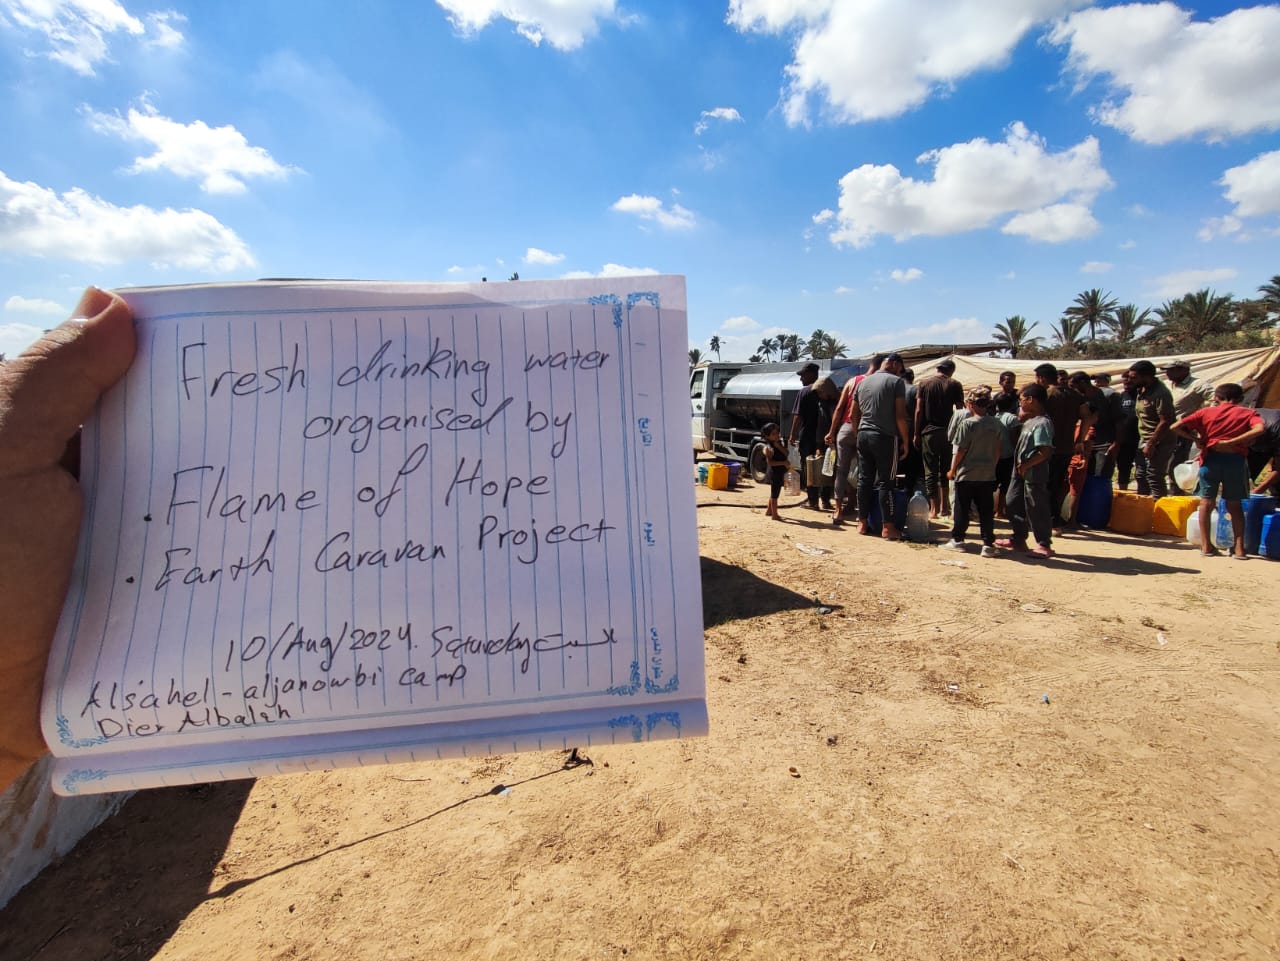 Fresh drinking water
organised by
. Flame of Hope
. Earth Caravan Project
10/Aug/2024. Saturday السبت
Alsahel - aljanowbi camp
Dier Albalah